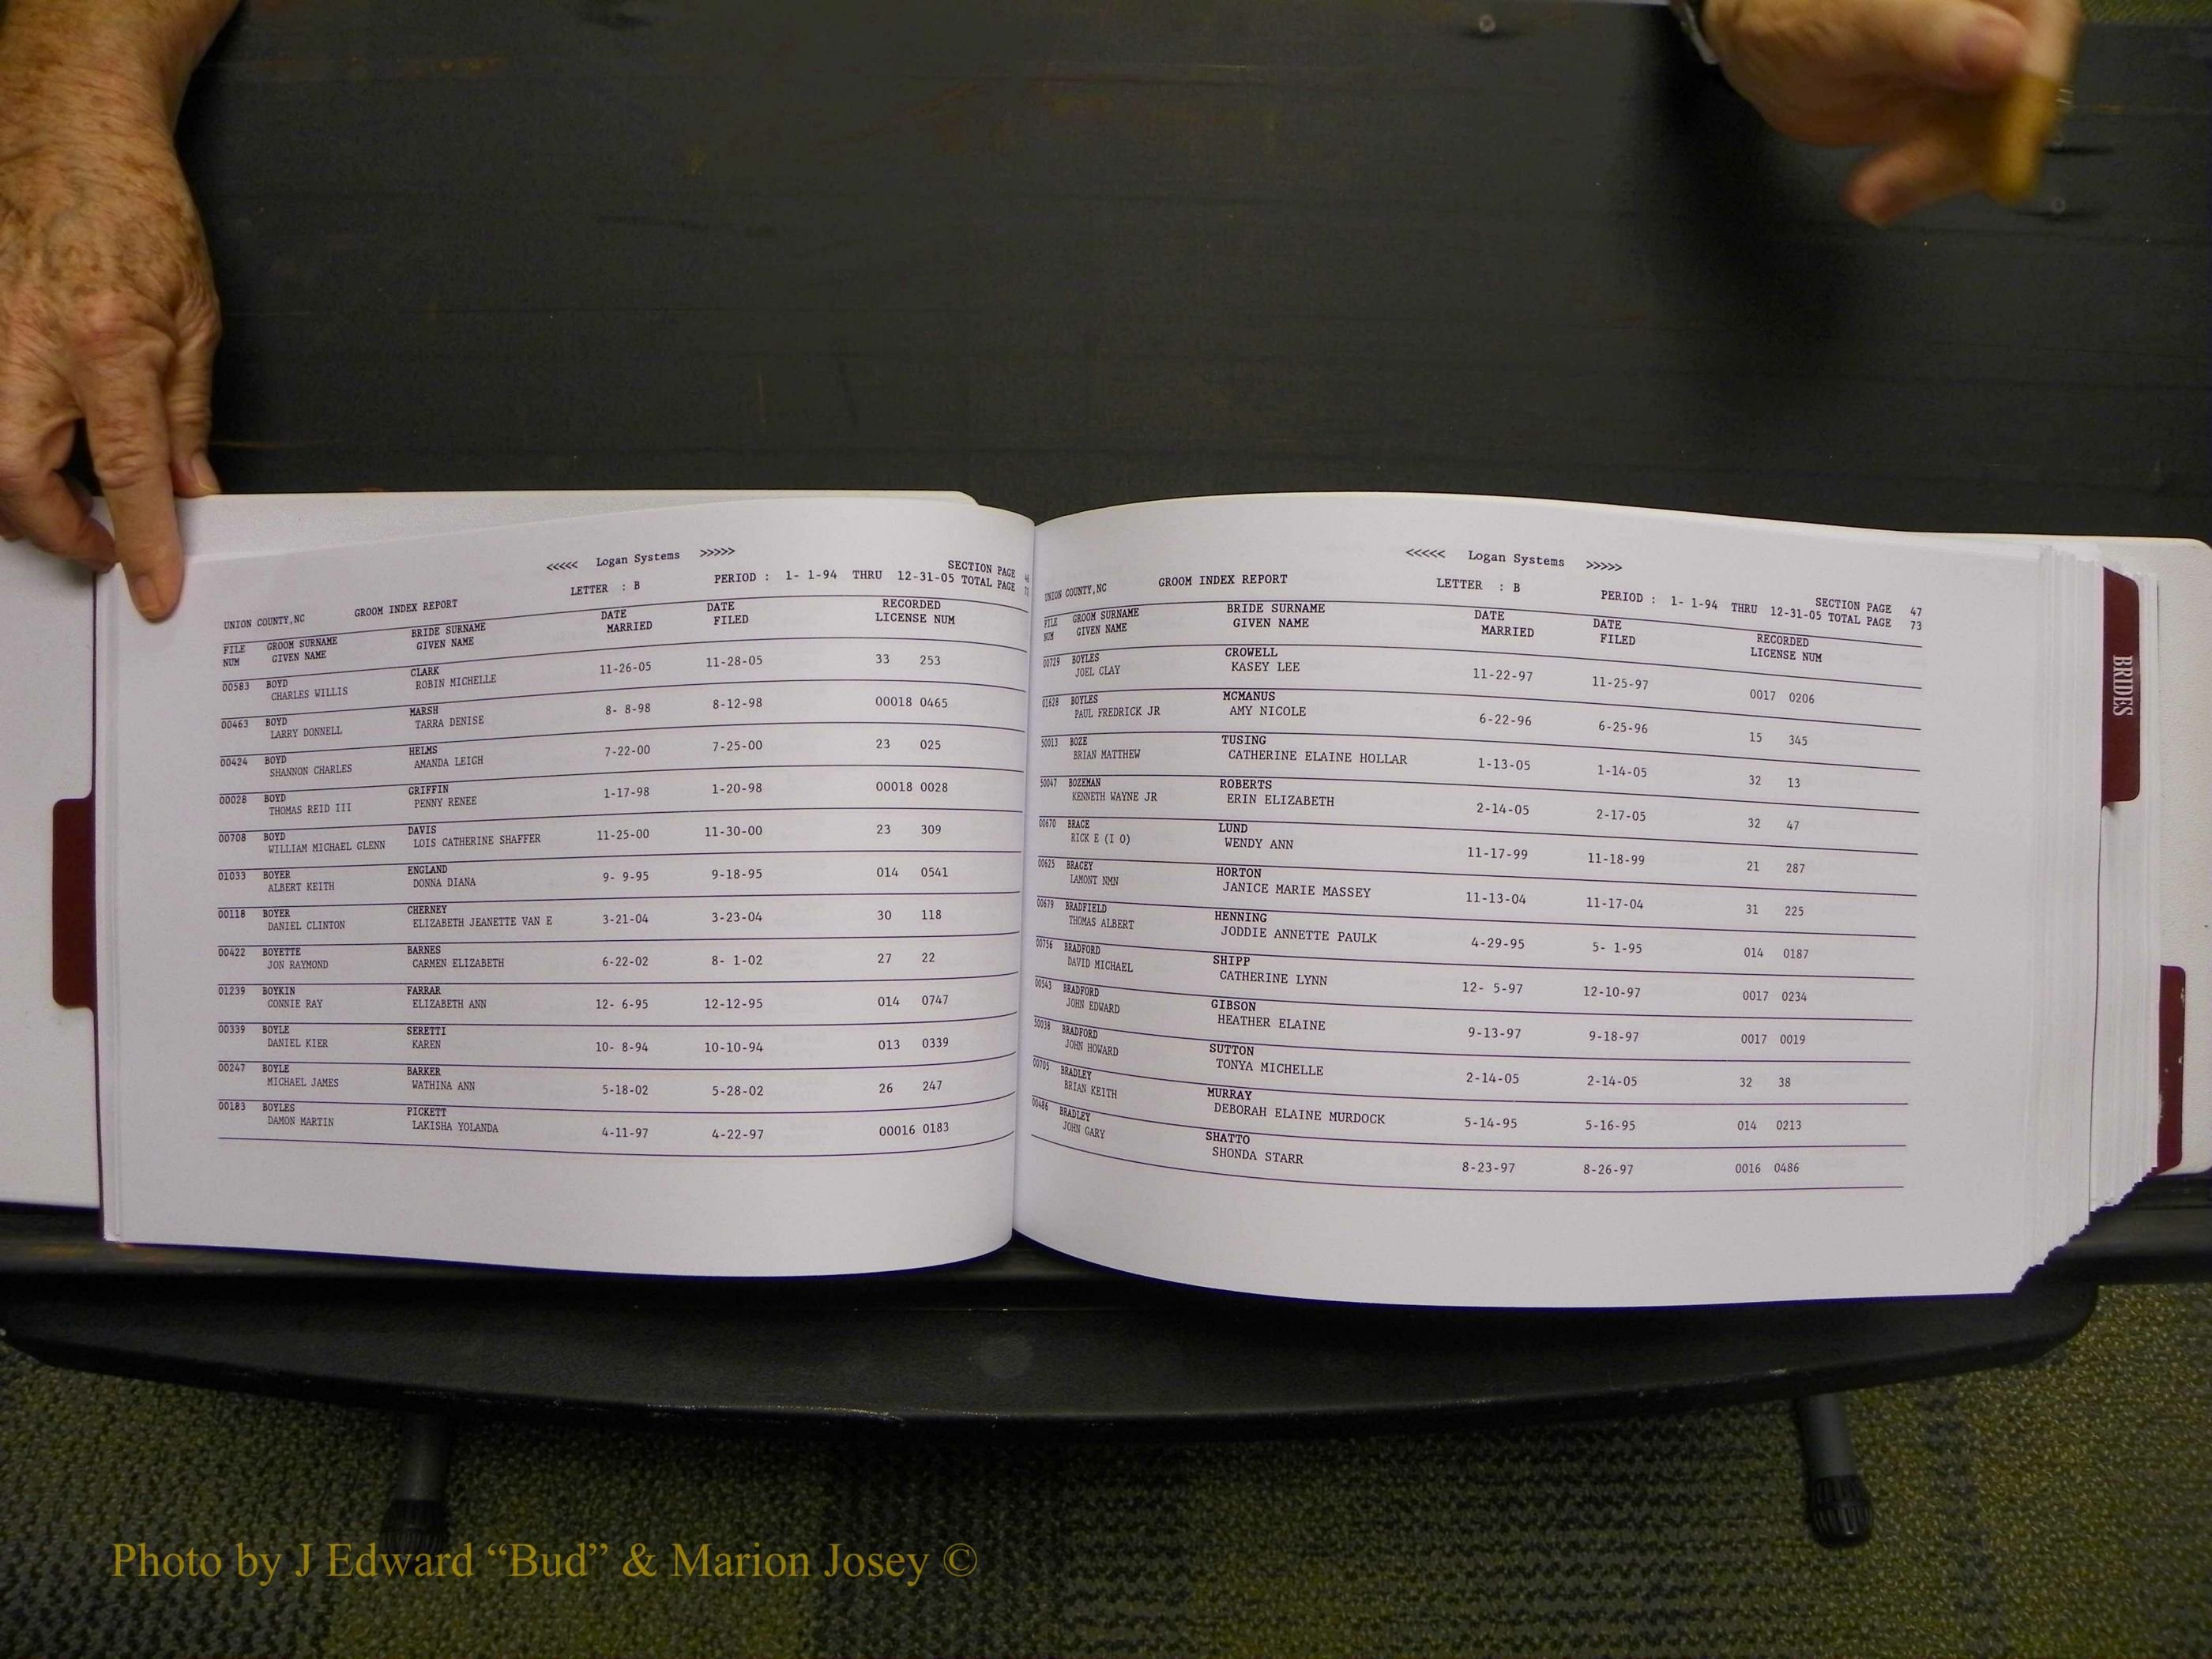 <<<<< Logan Systems >>>>>
SECTION PAGE
LETTER : B PERIOD : 1- 1-94 THRU 12-31-05 TOTAL PAGE
UNION COUNTY,NC GROOM INDEX REPORT
FILE GROOM SURNAME BRIDE SURNAME DATE DATE RECORDED
NUM GIVEN NAME GIVEN NAME MARRIED FILED LICENSE NUM
00583 BOYD CLARK 11-26-05 11-28-05 33 253
CHARLES WILLIS ROBIN MICHELLE
00463 BOYD MARSH 8- 8-98 8-12-98 00018 0465
LARRY DONNELL TARRA DENISE
00424 BOYD HELMS 7-22-00 7-25-00 23 025
SHANNON CHARLES AMANDA LEIGH
00028 BOYD GRIFFIN 1-17-98 1-20-98 00018 0028
THOMAS REID III PENNY RENEE
00708 BOYD DAVIS 11-25-00 11-30-00 23 309
WILLIAM MICHAEL GLENN LOIS CATHERINE SHAFFER
01033 BOYER ENGLAND 9- 9-95 9-18-95 014 0541
ALBERT KEITH DONNA DIANA
00118 BOYER CHERNEY 3-21-04 3-23-04 30 118
DANIEL CLINTON ELIZABETH JEANETTE VAN E
00422 BOYETTE BARNES 6-22-02 8- 1-02 27 22
JON RAYMOND CARMEN ELIZABETH
01239 BOYKIN FARRAR 12- 6-95 12-12-95 014 0747
CONNIE RAY ELIZABETH ANN
00339 BOYLE SERETTI 10- 8-94 10-10-94 013 0339
DANIEL KIER KAREN
00247 BOYLE BARKER 5-18-02 5-28-02 26 247
MICHAEL JAMES WATHINA ANN
00183 BOYLES PICKETT 4-11-97 4-22-97 00016 0183
DAMON MARTIN LAKISHA YOLANDA
<<<<< Logan Systems >>>>>
UNION COUNTY,NC GROOM INDEX REPORT LETTER : B SECTION PAGE 47
PERIOD : 1- 1-94 THRU 12-31-05 TOTAL PAGE 73
FILE GROOM SURNAME BRIDE SURNAME DATE DATE RECORDED
NUM GIVEN NAME GIVEN NAME MARRIED FILED LICENSE NUM
00729 BOYLES CROWELL 11-22-97 11-25-97 0017 0206
JOEL CLAY KASEY LEE
01628 BOYLES MCMANUS 6-22-96 6-25-96 15 345
PAUL FREDRICK JR AMY NICOLE
50013 BOZE TUSING 1-13-05 1-14-05 32 13
BRIAN MATTHEW CATHERINE ELAINE HOLLAR
50047 BOZEMAN ROBERTS 2-14-05 2-17-05 32 47
KENNETH WAYNE JR ERIN ELIZABETH
00670 BRACE LUND 11-17-99 11-18-99 21 287
RICK E (I O) WENDY ANN
00625 BRACEY HORTON 11-13-04 11-17-04 31 225
LAMONT NMN JANICE MARIE MASSEY
00679 BRADFIELD HENNING 4-29-95 5- 1-95 014 0187
THOMAS ALBERT JODDIE ANNETTE PAULK
00756 BRADFORD SHIPP 12- 5-97 12-10-97 0017 0234
DAVID MICHAEL CATHERINE LYNN
00543 BRADFORD GIBSON 9-13-97 9-18-97 0017 0019
JOHN EDWARD HEATHER ELAINE
50038 BRADFORD SUTTON 2-14-05 2-14-05 32 38
JOHN HOWARD TONYA MICHELLE
00705 BRADLEY MURRAY 5-14-95 5-16-95 014 0213
BRIAN KEITH DEBORAH ELAINE MURDOCK
00486 BRADLEY SHATTO 8-23-97 8-26-97 0016 0486
JOHN GARY SHONDA STARR
BRIDES
Photo by J Edward “Bud” & Marion Josey ©